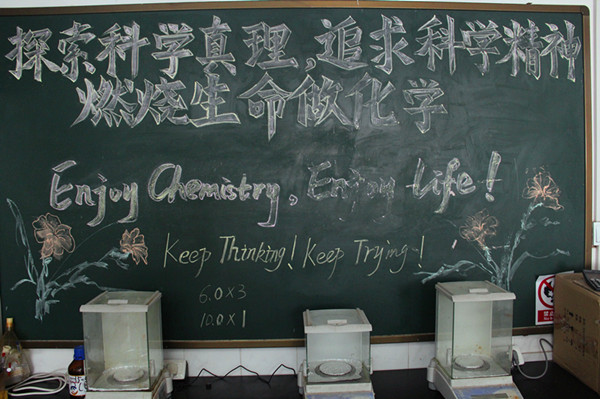 探索科学真理，追求科学精神
燃烧生命做化学
Enjoy Chemistry, Enjoy Life!
Keep Thinking! Keep Trying!
6.0×3
10.0×1